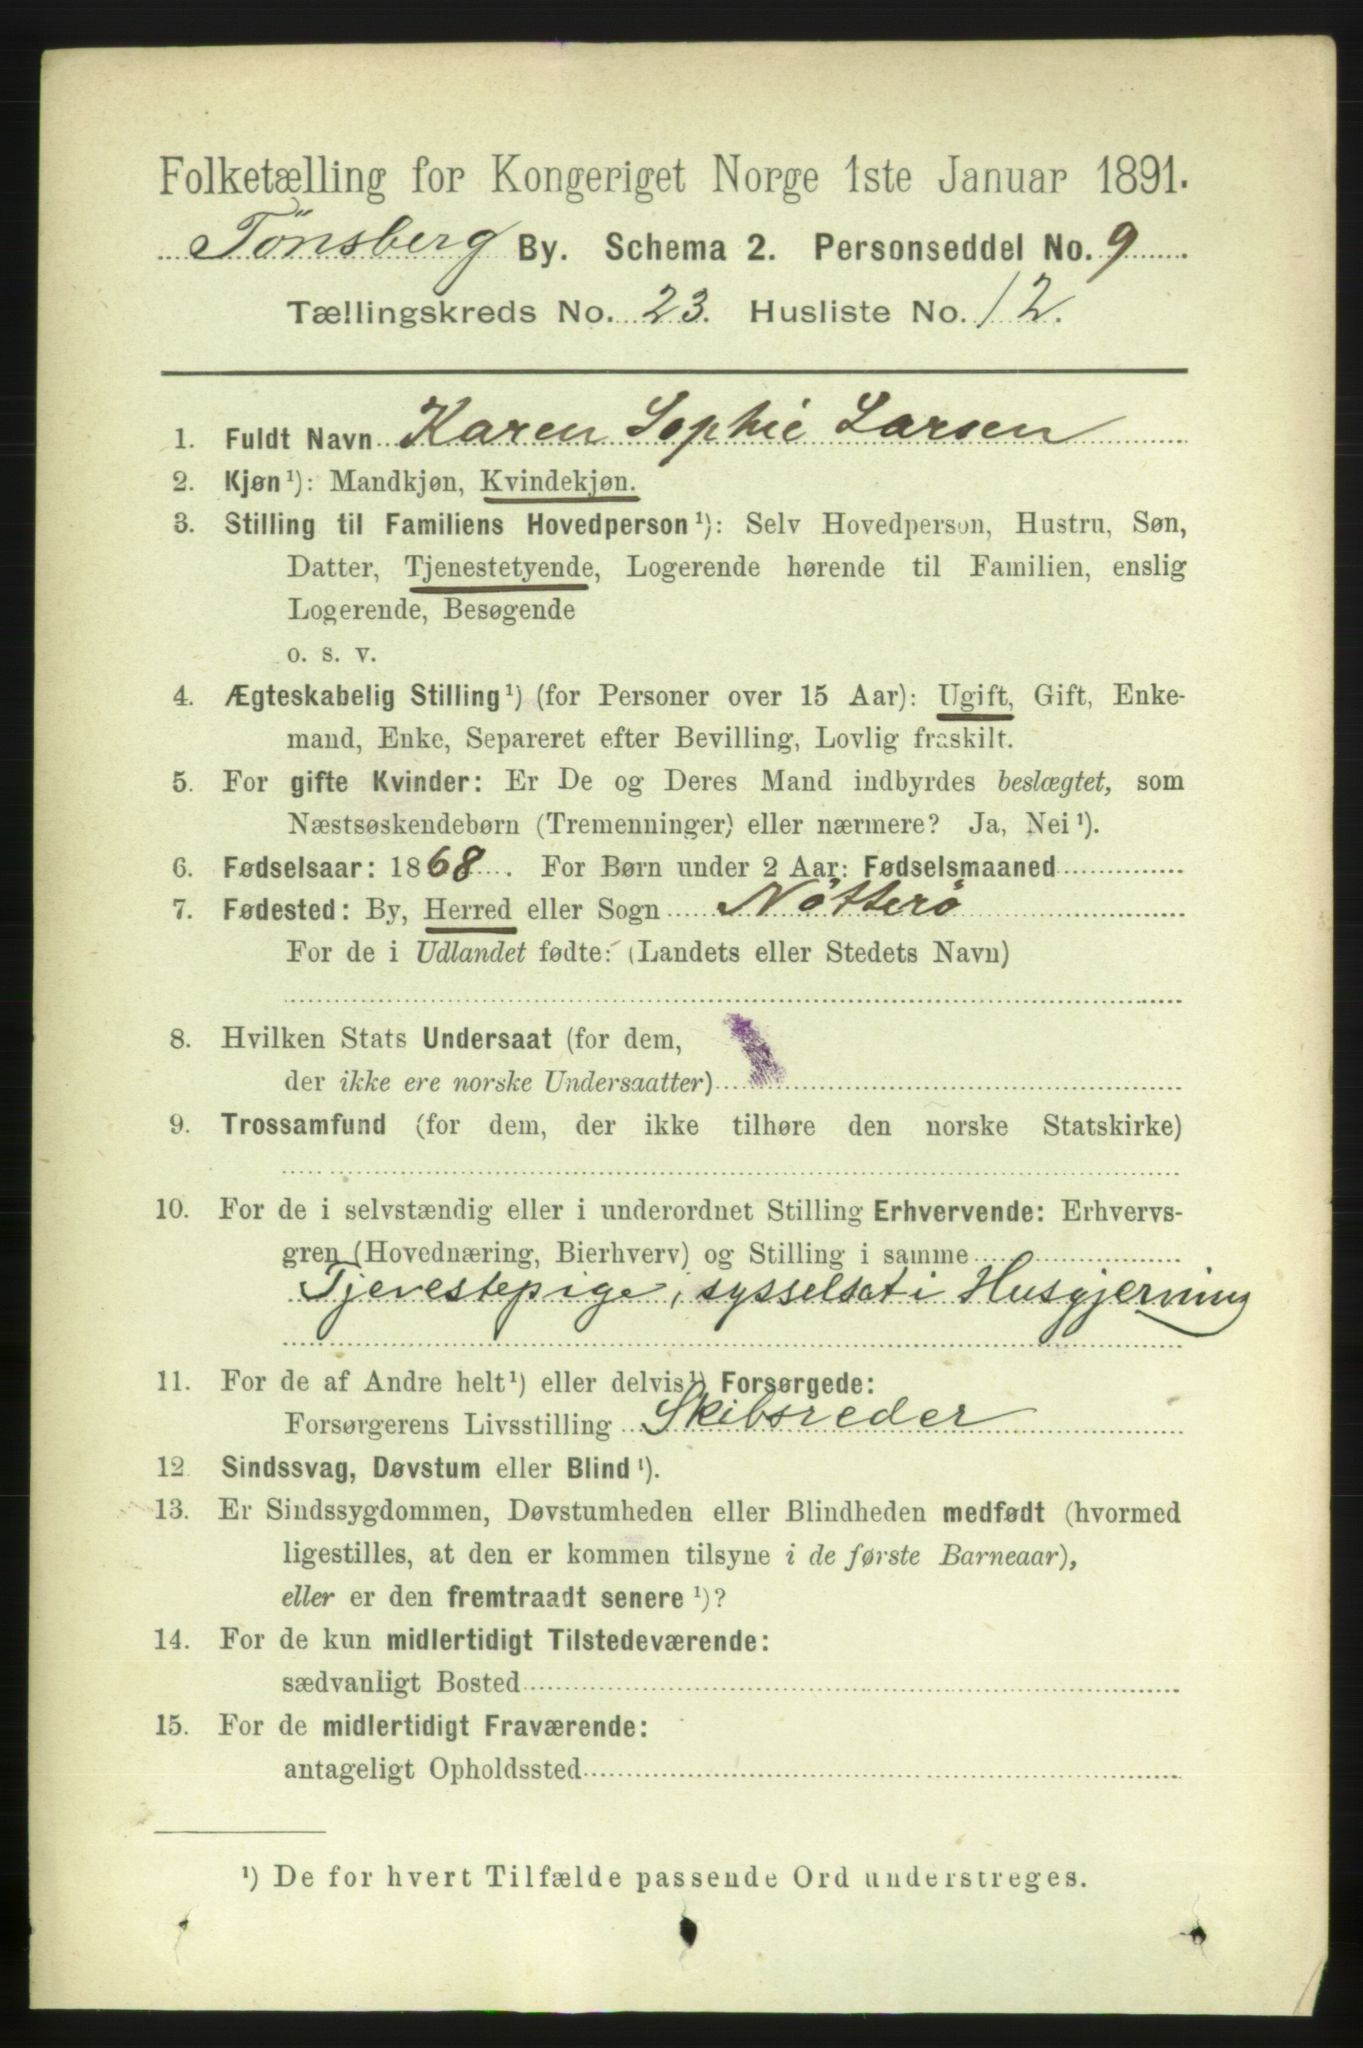 Folketælling for Kongeriget Norge 1ste Januar 1891.
Tönsberg By. Schema 2. Personseddel No. 9
Tællingskreds No. 23. Husliste No. 12.
1. Fuldt Navn Karen Sophie Larsen
2. Kjøn ¹): Mandkjøn, Kvindekjøn.
3. Stilling til Familiens Hovedperson ¹): Selv Hovedperson, Hustru, Søn,
Datter, Tjenestetyende, Logerende hørende til Familien, enslig
Logerende, Besøgende
o. s. v.
4. Ægteskabelig Stilling ¹) (for Personer over 15 Aar): Ugift, Gift, Enke-
mand, Enke, Separeret efter Bevilling, Lovlig fraskilt.
5. For gifte Kvinder: Er De og Deres Mand indbyrdes beslægtet, som
Næstsøskendebørn (Tremenninger) eller nærmere? Ja, Nei ¹).
6. Fødselsaar: 1868. For Børn under 2 Aar: Fødselsmaaned
7. Fødested: By, Herred eller Sogn Nötterö
For de i Udlandet fødte: (Landets eller Stedets Navn)
8. Hvilken Stats Undersaat (for dem,
der ikke ere norske Undersaatter)
9. Trossamfund (for dem, der ikke tilhøre den norske Statskirke)
10. For de i selvstændig eller i underordnet Stilling Erhvervende: Erhvervs-
gren (Hovednæring, Bierhverv) og Stilling i samme
Tjenestepige, sysselsat i Husgjerning
11. For de af Andre helt ¹) eller delvis ¹) Forsørgede:
Forsørgerens Livsstilling Skibsreder
12 Sindssvag, Døvstum eller Blind ¹).
13. Er Sindssygdommen, Døvstumheden eller Blindheden medfødt (hvormed
ligestilles, at den er kommen tilsyne i de første Barneaar),
eller er den fremtraadt senere ¹)?
14. For de kun midlertidigt Tilstedeværende:
sædvanligt Bosted
15. For de midlertidigt Fraværende:
antageligt Opholdssted
¹) De for hvert Tilfælde passende Ord understreges.